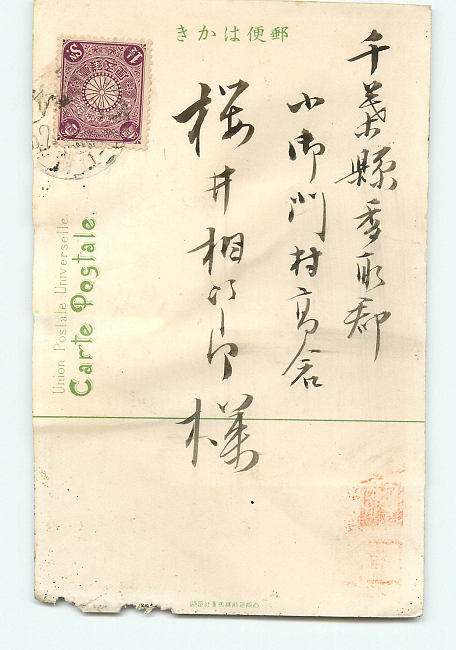 郵便はかき
千葉縣香取郡
小御門村高倉
桜井相次郎
様
Union Postale Universelle.
Carte Postale.